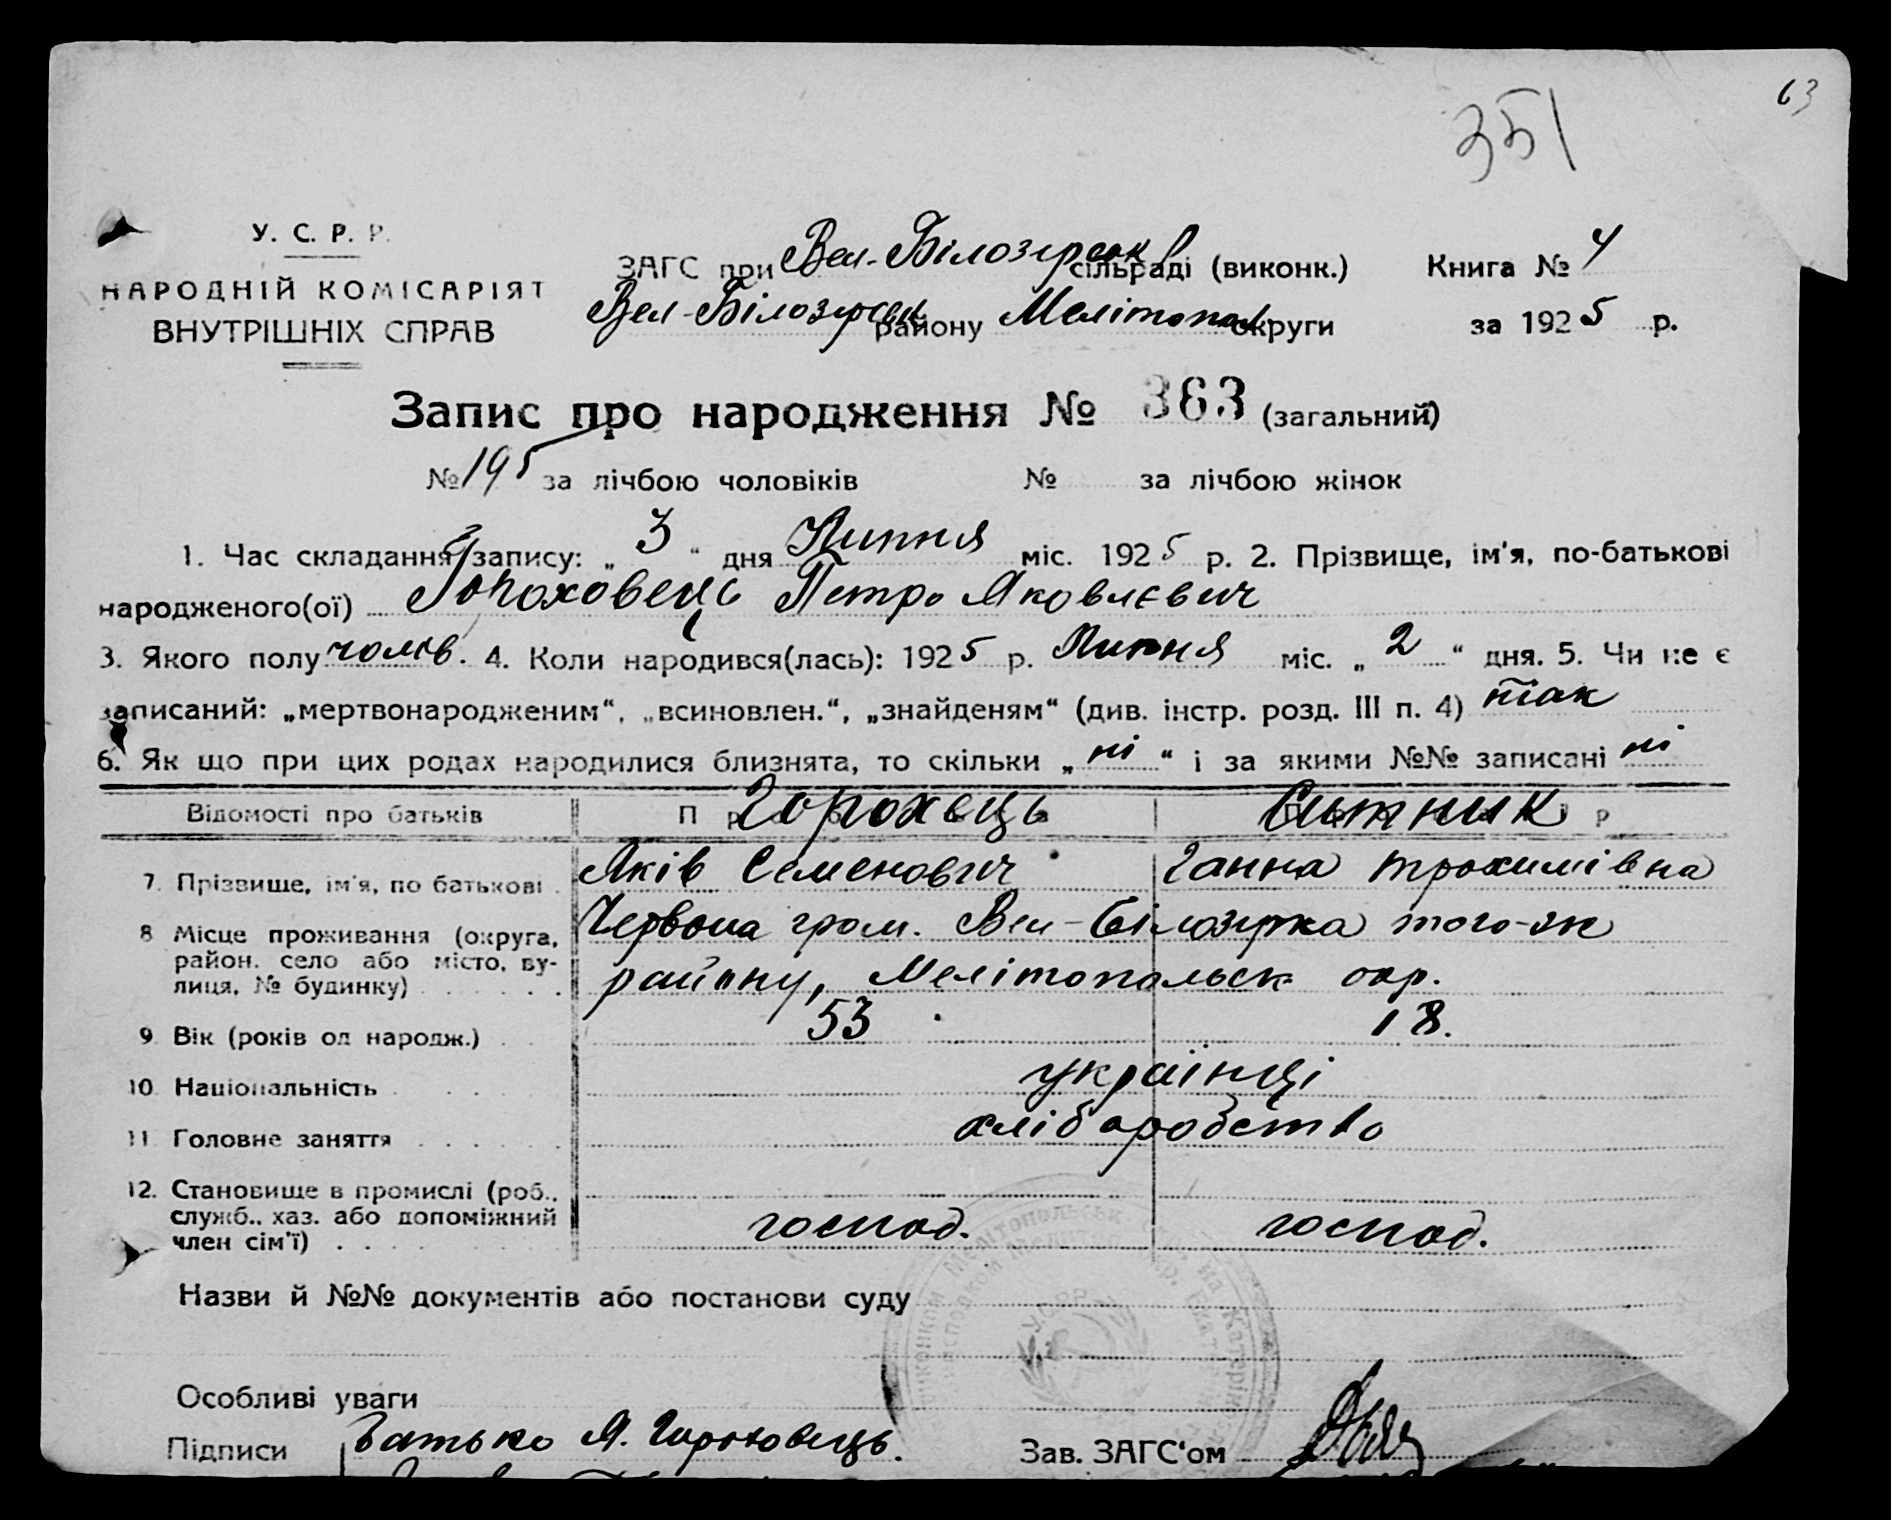 63
351
У. С. Р. Р.
НАРОДНІЙ КОМІСАРІЯТ
ВНУТРІШНІХ СПРАВ
ЗАГС при Вел-Білозірськ сільраді (виконк.) Книга № 4
Вел-Білозірськ району Мелітопол округи за 1925 р.
Запис про народження № 363 (загальний)
№ 195 за лічбою чоловіків № за лічбою жінок
1. Час складання запису: „ 3 “ дня Липня міс. 1925 р. 2. Прізвище, ім'я, по-батькові
народженого(ої) Гороховець Петро Яковлєвич
3. Якого полу чолів. 4. Коли народився(лась): 1925 р. Липня міс. „ 2 “ дня. 5. Чи не є
записаний: „мертвонародженим“, „всиновлен.“, „знайденям“ (див. інстр. розд. III п. 4) так
6. Як що при цих родах народилися близнята, то скільки „ ні “ і за якими №№ записані ні
Відомості про батьків Горохвець Ситник
7. Прізвище, ім'я, по батькові Яків Семенович Ганна Трохимівна
8 Місце проживання (округа, район, село або місто, ву-лиця, № будинку) Червона гром. Вел-Білозірка того-ж
району, Мелітопольськ окр.
9 Вік (років од народж.) 53 18.
10 Національність українці
11 Головне заняття хліборобство
12. Становище в промислі (роб., служб., хаз. або допоміжний член сім'ї) господ. господ.
Назви й №№ документів або постанови суду
Особливі уваги
Підписи Батько Я. Гороховець. Зав. ЗАГС'ом